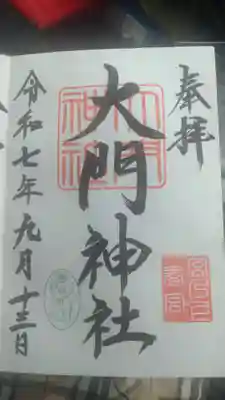 奉拝
大門神社
令和七年九月十三日